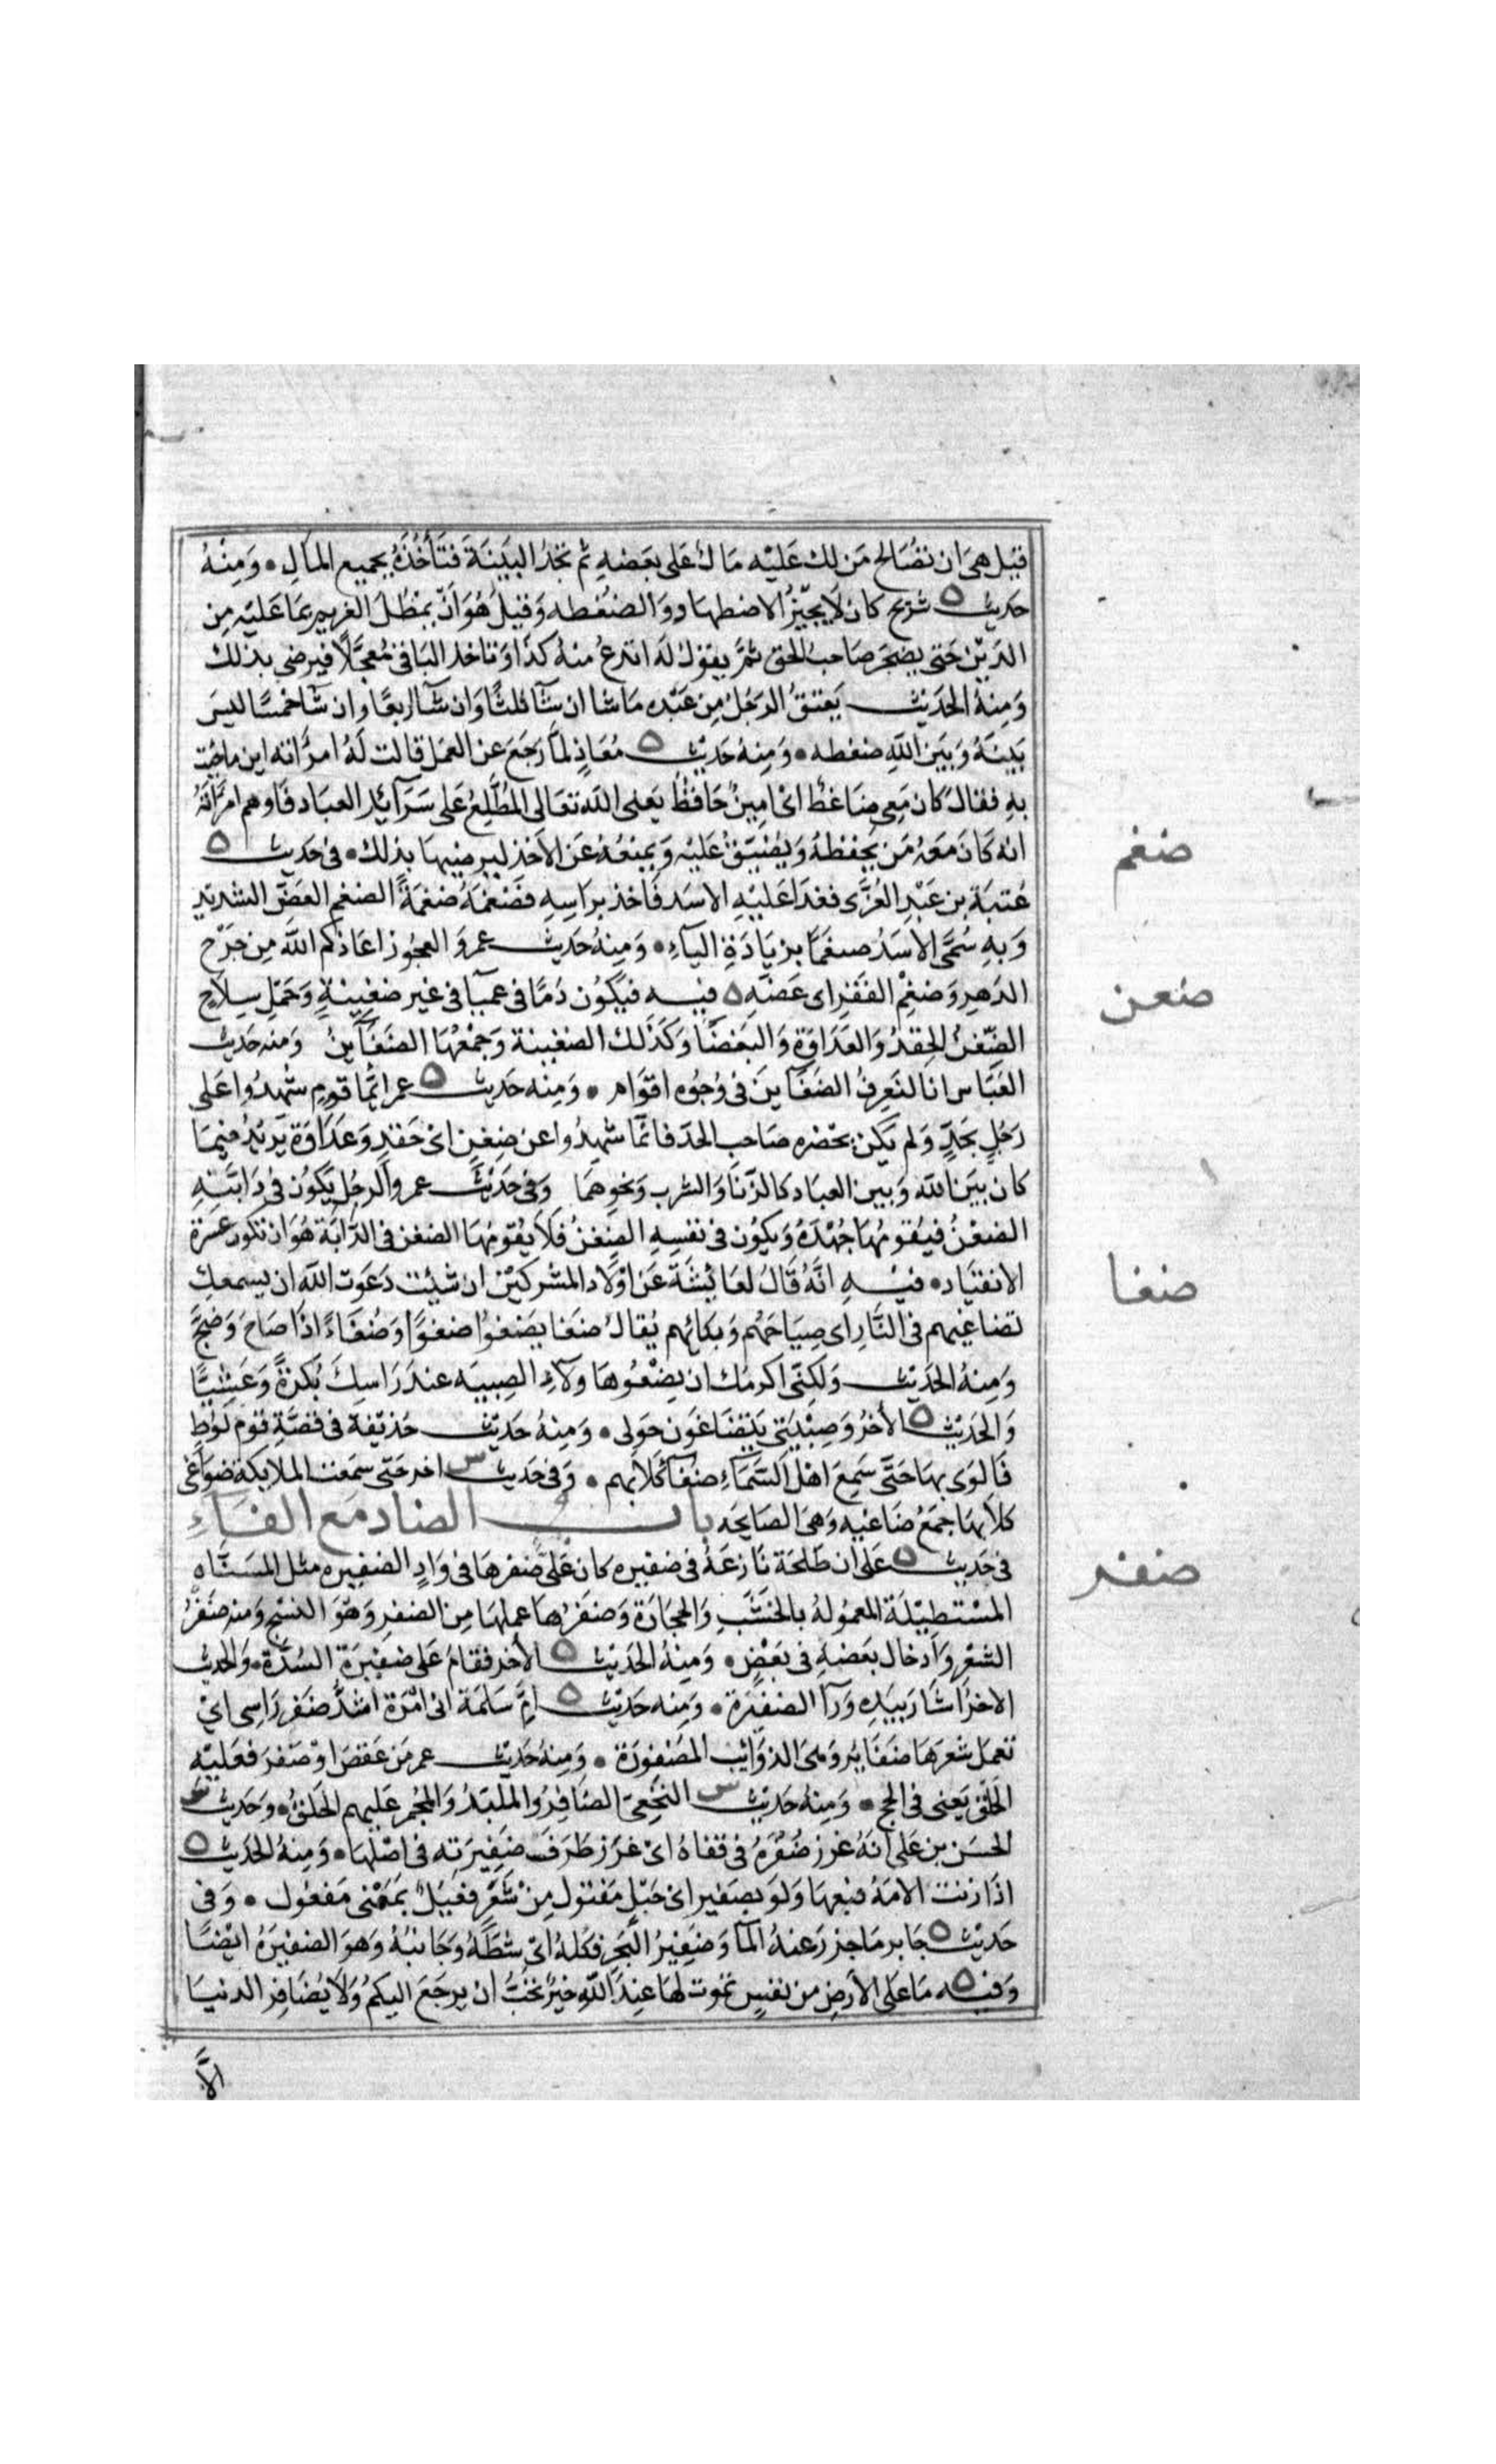 قيل هى ان تصالح من لك عليه مال على بعضه ثم تجد البينة فتأخذه بجميع المال ۰ ومنه
حديث ه شريح كان لا يجيز الاضطهاد والضغطه وقيل هو ان يمطل الغريم بما عليه من
الدين حتى يضجر صاحب الحق ثم يقول له اتدع منه كذا وتاخذ الباقى معجلا فيرضى بذلك
ومنه الحديث يعتق الرجل من عبده ماشا ان شآ ثلثا وان شآ ربعا وان شآ خمسا ليس
بينه وبين الله ضغطه ۰ ومنه حديث ه معاذ لما رجع عن العمل قالت له امرأته اين ماجئت
به فقال كان معى ضاغط اى امين حافظ يعنى الله تعالى المطلع على سرآئر العباد فاوهم امرأته
انه كان معه من يحفظه ويضيق عليه ويمنعه عن الأخذ ليرضيها بذلك ۰ فى حديث ه
ضغم
عتبة بن عبد العزى فغدا عليه الاسد فاخذ براسه فضغمه ضغمة الضغم العض الشديد
وبه سمى الاسد ضيغما بزيادة اليآء ۰ ومنه حديث عمر والعجوز اعاذكم الله من جرح
الدهر وضغم الفقر اى عضه ه فيه فيكون دما فى عميا فى غير ضغينة وحمل سلاح
ضعن
الضغن الحقد والعداوة والبغضا وكذلك الضغينة وجمعها الضغآين ومنه حديث
العباس انا لنعرف الضغآين فى وجوه اقوام ۰ ومنه حديث ه عمر ايما قوم شهدوا على
رجل بحد ولم يكن بحضره صاحب الحد فانما شهدوا عن ضغن اى حقد وعداوة يريد فيما
كان بين الله وبين العباد كالزنا والشرب ونحوهما وفى حديث عمرو الرجل يكون فى دابته
الضغن فيقومها جهده ويكون فى نفسه الضغن فلا يقومها الضغن فى الدابة هو ان تكون عسرة
الانقياد ۰ فيه انه قال لعائشة عن اولاد المشركين ان شئت دعوت الله ان يسمعك
ضغا
تضاغيهم فى النار اى صياحهم وبكائهم يقال ضغا يضغوا ضغوا وضغاء اذا صاح وضج
ومنه الحديث ولكنى اكرمك ان يضغوا هاولآء الصبيه عند راسك بكرة وعشيا
والحديث ه الأخر وصبيتى يتضاغون حولى ۰ ومنه حديث حذيفة فى قصة قوم لوط
فالوى بها حتى سمع اهل السمآء ضغآ كلابهم ۰ وفى حديث س اخر حتى سمعت الملايكة ضواغى
كلابها جمع ضاغيه وهى الصايحه باب الضاد مع الفآء
فى حديث ه على ان طلحة نازعه فى ضفيره كان على ضفرها فى واد الضفيره مثل المسناه
ضفر
المستطيلة المعموله بالخشب والحجارة وضفرها عملها من الضفر وهو النسج ومنه ضفر
الشعر وادخال بعضه فى بعض ۰ ومنه الحديث ه الأخر فقام على ضفيرة السدة ۰ والحديث
الاخر اشار بيده ورآ الضفيرة ۰ ومنه حديث ه ام سلمة انى امرة اشد ضفر راسى اى
تعمل شعرها ضفاير وهى الذوآئب المضفورة ۰ ومنه حديث عمر من عقص او ضفر فعليه
الحلق يعنى فى الحج ۰ ومنه حديث س النخعى الضافر والملبد والمجمر عليهم الحلق ۰ وحديث س
الحسن بن على انه غرز ضفره فى قفاه اى غرز طرف ضفيرته فى اصلها ۰ ومنه الحديث ه
اذا زنت الامه فبعها ولو بضفير اى حبل مفتول من شعر فعيل بمعنى مفعول ۰ وفى
حديث ه جابر ماجزر عنه المآ وضفير البحر فكله اى شطه وجانبه وهو الضفيره ايضا
وفيه ه ما على الأرض من نفس تموت لها عند الله خير تحب ان يرجع اليكم ولا يضافر الدنيا
الا